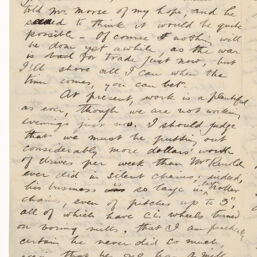 told Mr. Morse of my hope, and he
seemed to think it would be quite
possible - Of course nothing will
be done yet awhile, as the war
is bad for trade just now, but
I'll shove all I can when the
time comes, you can bet.
At present, work is as plentiful
as ever, though we are not workin'
evenings just now. I should judge
that we must be puttin' out
considerably more dollars' worth
of drives per week than Mr
ever did in silent chains; indeed,
his business is so large in
chains, even of pitches up to 3",
all of which have C.I. wheels turned
on boring mills, that I am perfectly
certain he never did so much,